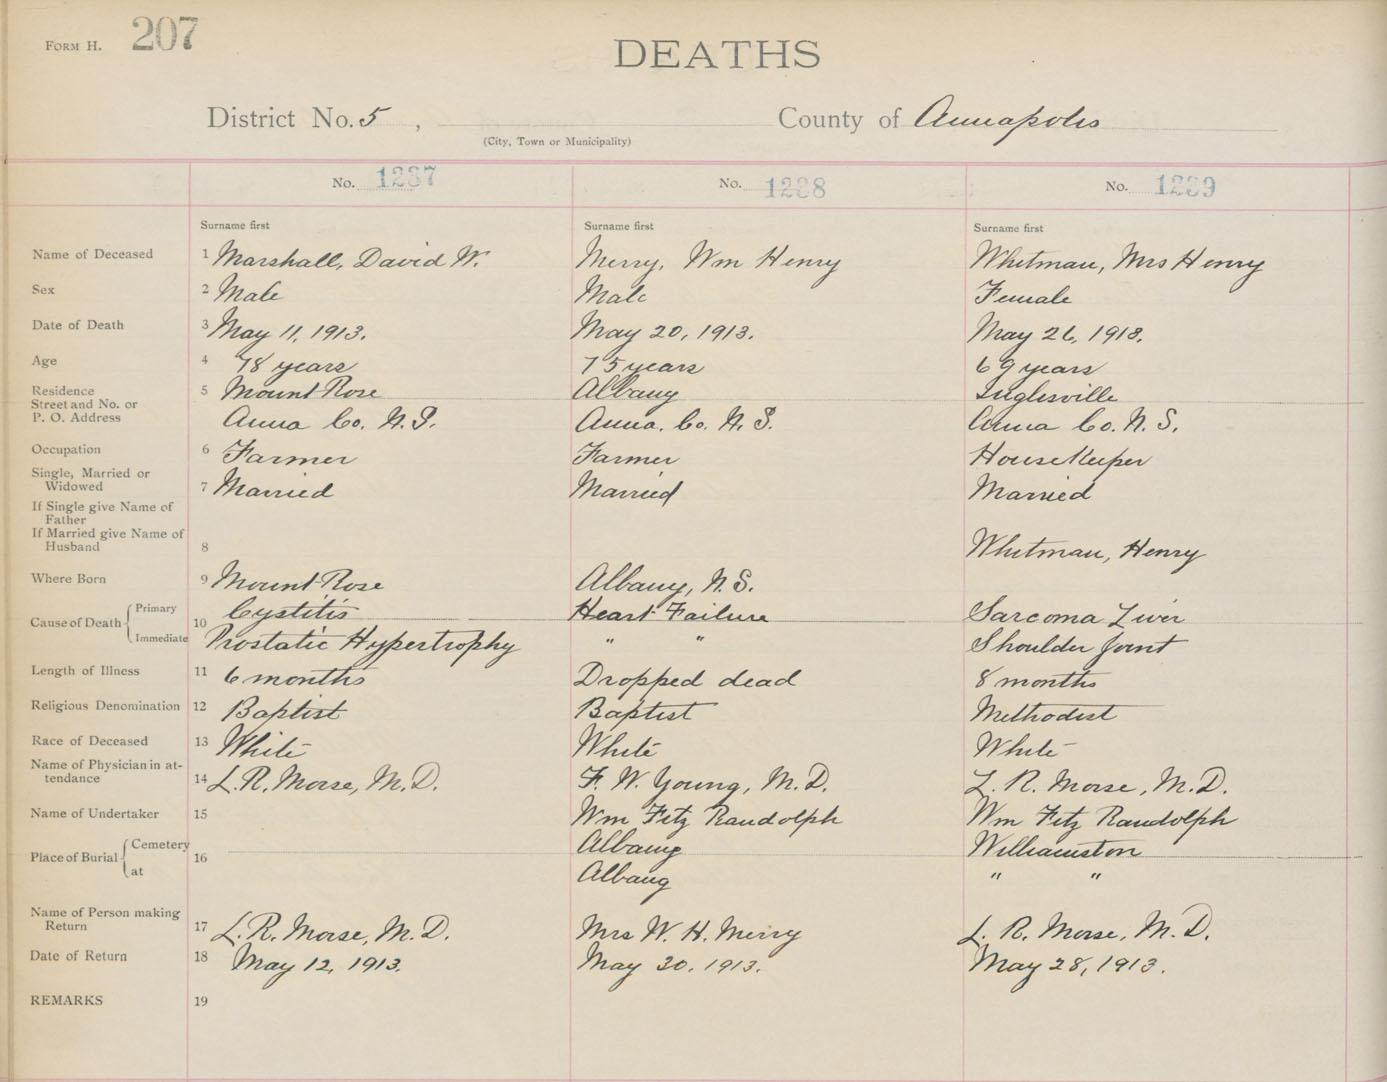 FORM H. 207
DEATHS
District No. 5 , County of Annapolis
(City, Town or Municipality)
No. 1237 No. 1238 No. 1239
Surname first Surname first Surname first
Name of Deceased 1 Marshall, David W. Merry, Wm Henry Whitman, Mrs Henry
Sex 2 Male Male Female
Date of Death 3 May 11, 1913. May 20, 1913. May 26, 1913.
Age 4 78 years 75 years 69 years
Residence 5 Mount Rose Albany Inglesville
Street and No. or
P. O. Address Anna Co. N.S. Anna. Co. N.S. Anna Co. N.S.
Occupation 6 Farmer Farmer HouseKeeper
Single, Married or
Widowed 7 Married Married Married
If Single give Name of
Father
If Married give Name of
Husband 8 Whitman, Henry
Where Born 9 Mount Rose Albany, N.S.
Cause of Death Primary 10 Cystitis Heart Failure Sarcoma Liver
Immediate Prostatic Hypertrophy " " Shoulder Joint
Length of Illness 11 6 months Dropped dead 8 months
Religious Denomination 12 Baptist Baptist Methodist
Race of Deceased 13 White White White
Name of Physician in at-
tendance 14 L.R. Morse, M.D. F. W. Young, M.D. L. R. Morse, M.D.
Name of Undertaker 15 Wm Fitz Randolph Wm Fitz Randolph
Place of Burial Cemetery 16 Albany Williamston
at Albany " "
Name of Person making
Return 17 L.R. Morse, M.D. Mrs W. H. Merry L. R. Morse, M.D.
Date of Return 18 May 12, 1913. May 30, 1913. May 28, 1913.
REMARKS 19